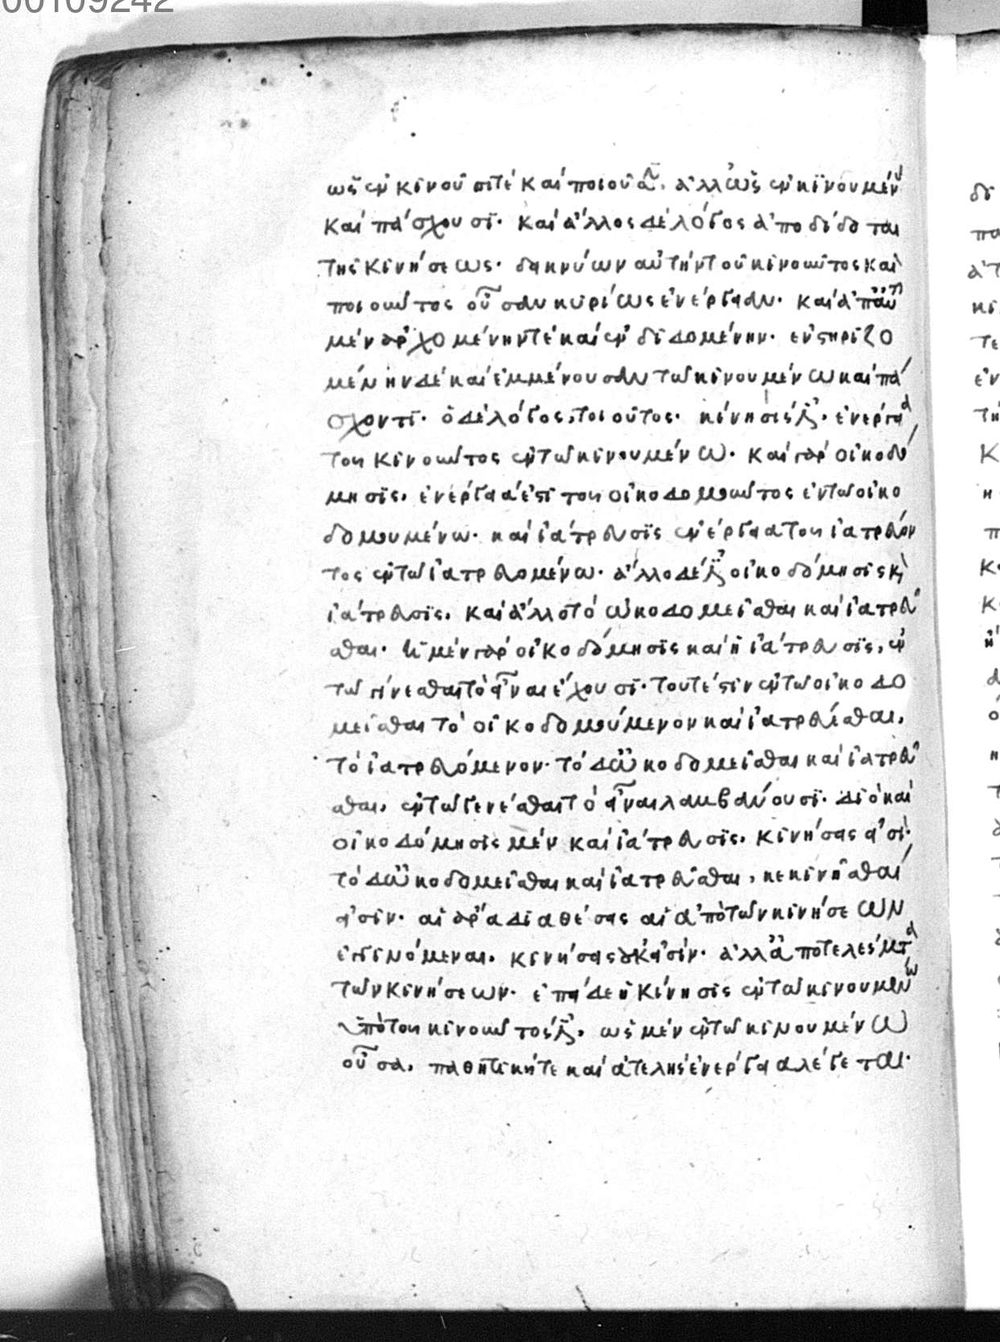 00109242
ὡς ἐν κινοῦντί τε καὶ ποιοῦντι, ἀλλ' ὡς ἐν κινουμένῳ
καὶ πάσχουσι. καὶ ἄλλος δὲ λόγος ἀποδίδοται
τῆς κινήσεως. δεικνύων αὐτὴν τοῦ κινοῦντος καὶ
ποιοῦντος οὖσαν κυρίως ἐνέργειαν. καὶ ἀπ' αὐτοῦ
μὲν ἀρχομένην τὲ καὶ ἐνδιδομένην. ἐνστηριζο
μένην δὲ καὶ ἐμμένουσαν τῶ κινουμένω καὶ πά
σχοντι. ὁ δὲ λόγος, τοιοῦτος. κίνησίς ἐστιν, ἐνέργεια
τοῦ κινοῦντος ἐν τῶ κινουμένω. καὶ γὰρ οἰκοδό
μησις, ἐνέργειά ἐστι τοῦ οἰκοδομοῦντος ἐν τῶ οἰκο
δομουμένω. καὶ ἰάτρευσις ἐνέργεια τοῦ ἰατρεύον
τος ἐν τῶ ἰατρευομένω. ἄλλο δέ ἐστιν οἰκοδόμησις καὶ
ἰάτρευσις, καὶ ἄλλο τὸ ὠκοδομεῖσθαι καὶ ἰατρεῦ
σθαι. ἡ μὲν γὰρ οἰκοδόμησις καὶ ἡ ἰάτρευσις, ἐν
τῶ γίνεσθαι τὸ εἶναι ἔχουσι. τουτέστιν ἐν τῶ οἰκοδο
μεῖσθαι τὸ οἰκοδομούμενον καὶ ἰατρεύεσθαι,
τὸ ἰατρευόμενον. τὸ δ' ὠκοδομεῖσθαι καὶ ἰατρεῦ
σθαι, ἐν τῶ γενέσθαι τὸ εἶναι λαμβάνουσι. διὸ καὶ
οἰκοδόμησις μὲν καὶ ἰάτρευσις, κινήσεις εἰσί.
τὸ δ' ὠκοδομεῖσθαι καὶ ἰατρεῦσθαι, κεκινῆσθαί
εἰσιν. αἱ ἄρα διαθέσεις αἱ ἀπὸ τῶν κινήσεων
ἐγγινόμεναι, κινήσεις οὐκ εἰσίν. ἀλλ' ἀποτελέσματα
τῶν κινήσεων. ἐπεὶ δὲ ἡ κίνησις ἐν τῶ κινουμένω
ὑπὸ τοῦ κινοῦντός ἐστιν, ὡς μὲν ἐν τῶ κινουμένω
οὖσα, παθητική τε καὶ ἀτελὴς ἐνέργεια λέγεται.